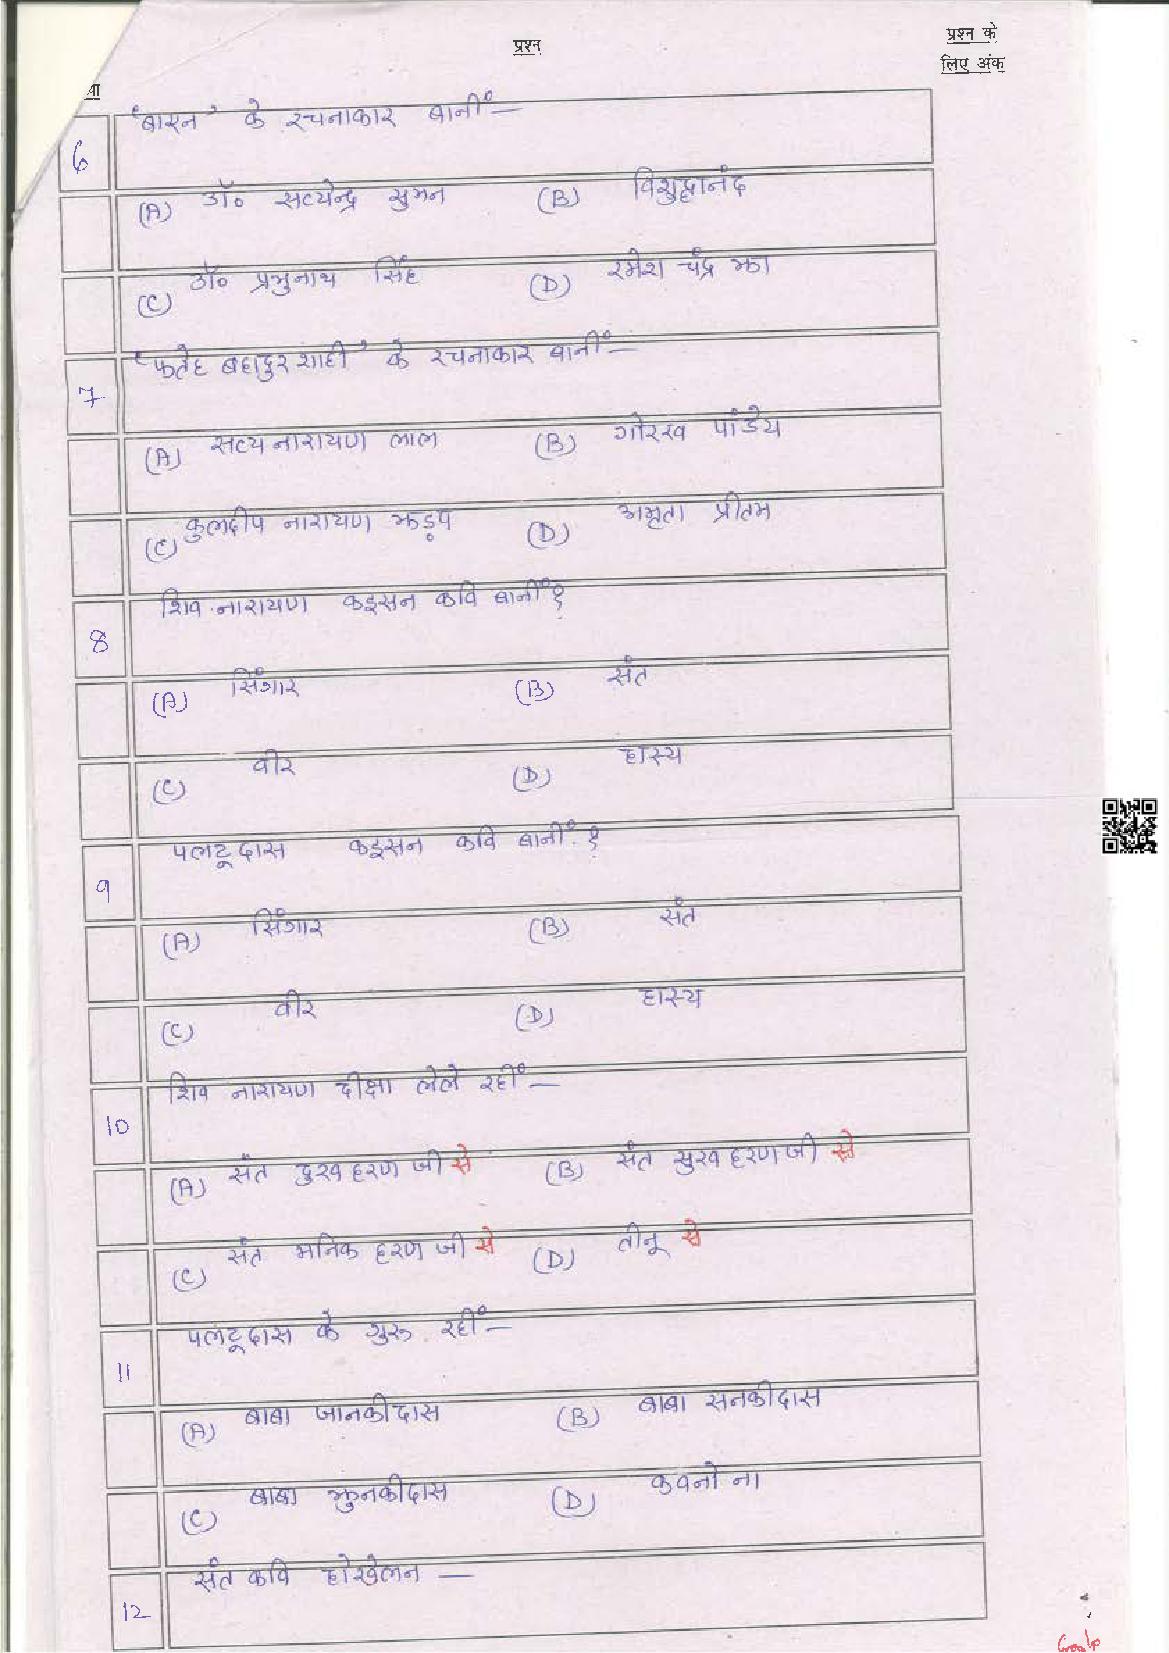 प्रश्न
प्रश्न के
लिए अंक
6 'बारन' के रचनाकार बानीं —
(A) डॉ० सत्येन्द्र सुमन (B) विशुद्धानंद
(C) डॉ० प्रभुनाथ सिंह (D) रमेश चंद्र झा
7 'फतेह बहादुर शाही' के रचनाकार बानीं —
(A) सत्य नारायण लाल (B) गोरख पांडेय
(C) कुलदीप नारायण झड़प (D) अमृता प्रीतम
8 शिव नारायण कइसन कवि बानीं ?
(A) सिंगार (B) संत
(C) वीर (D) हास्य
9 पलटू दास कइसन कवि बानीं ?
(A) सिंगार (B) संत
(C) वीर (D) हास्य
10 शिव नारायण दीक्षा लेले रहीं —
(A) संत दुखहरण जी से (B) संत सुखहरण जी से
(C) संत मनिक हरण जी से (D) तीनू से
11 पलटूदास के गुरु रहीं —
(A) बाबा जानकीदास (B) बाबा सनकीदास
(C) बाबा झुनकीदास (D) कवनो ना
12 संत कवि होखेलन —